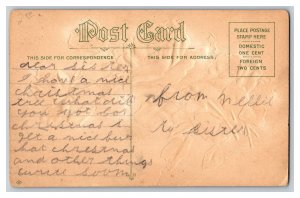 Post Card
THIS SIDE FOR CORRESPONDENCE
THIS SIDE FOR ADDRESS
PLACE POSTAGE
STAMP HERE
DOMESTIC
ONE CENT
FOREIGN
TWO CENTS
dear sister
I have a nice
christmas
tree what did
you got for
christmas I
get a nice
hat christmas
and other things
write soon
from Nellie
to